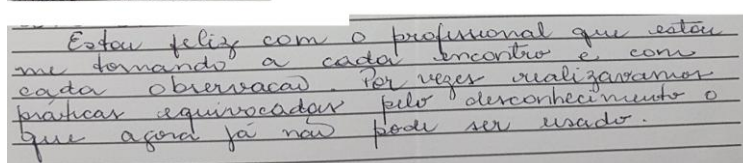 Estou feliz com o profissional que estou
me tornando a cada encontro e com
cada observação. Por vezes realizavamos
práticas equivocadas pelo desconhecimento o
que agora já não pode ser usado.